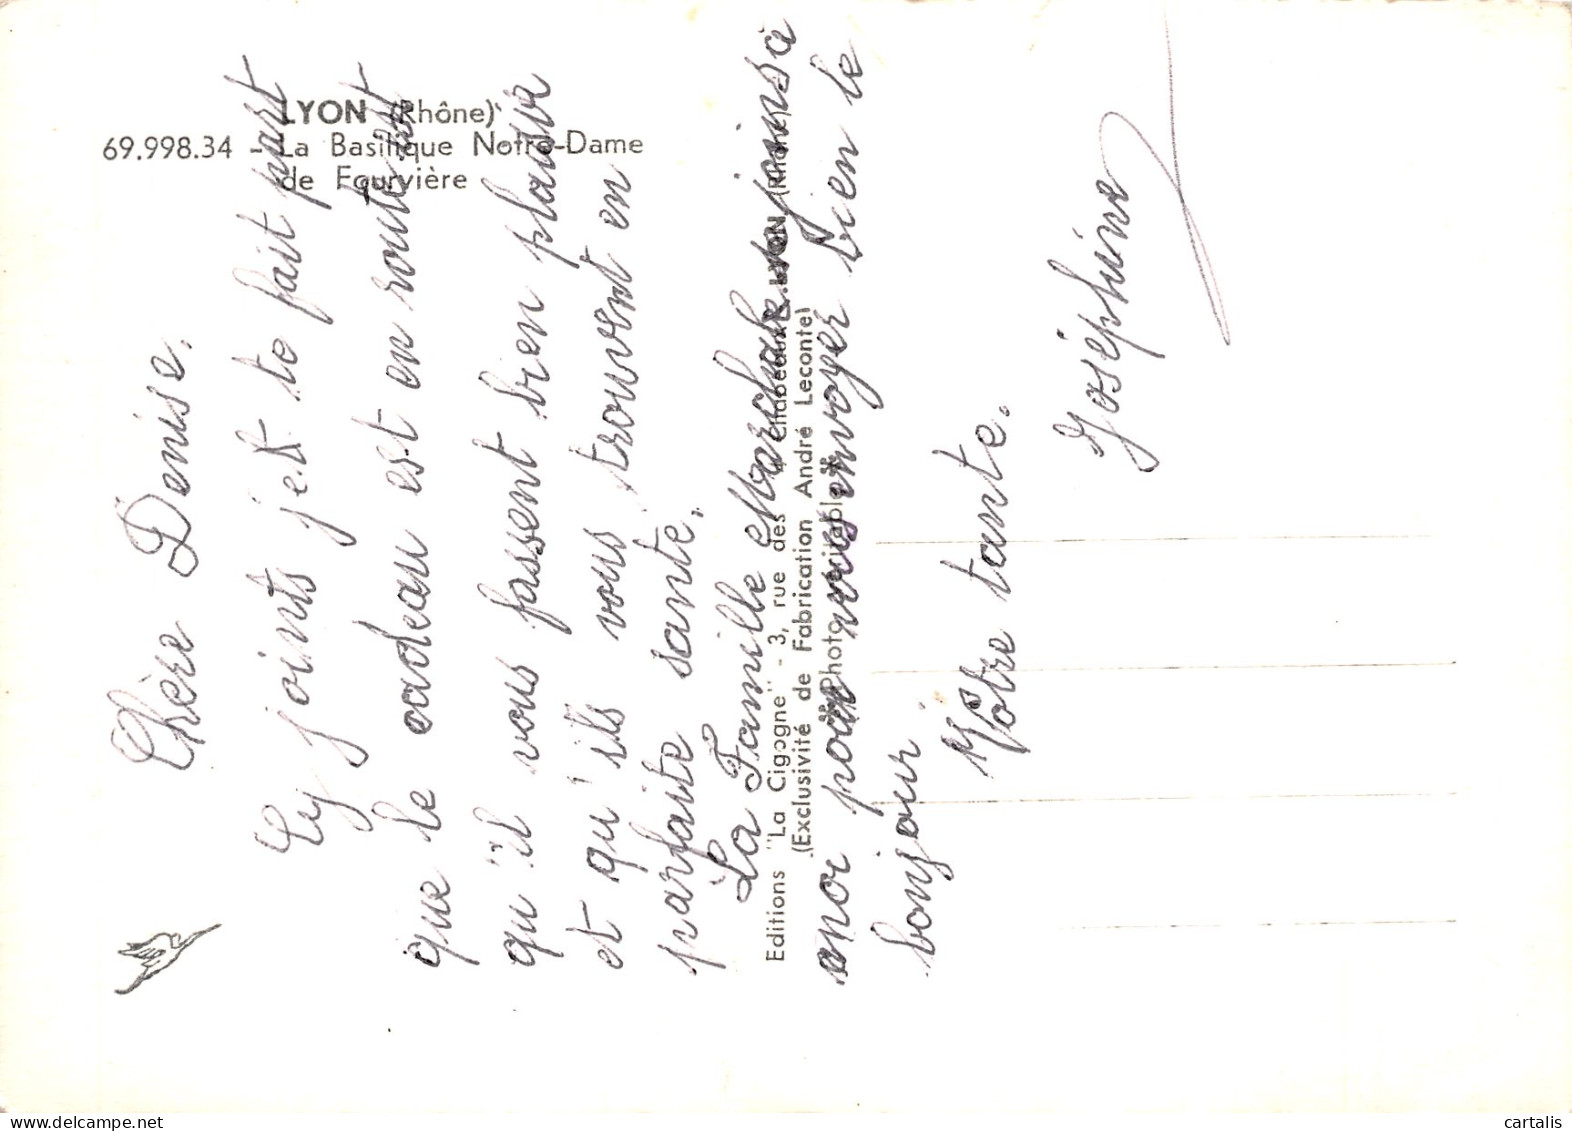 LYON (Rhône)
69.998.34 - La Basilique Notre-Dame
de Fourvière
Chère Denise.
Cy joints je te fait part
que le cadeau est en route et
qu'il vous fassent bien plaisir
et qu'ils vous trouvent en
parfaite sante.
La Famille se joinsà
moi pour vous envoyér bien le
bonjour
Vôtre tante.
Joséphine
Editions "La Cigogne" - 3, rue des LYON (Rhône)
(Exclusivité de Fabrication André Leconte)
Photo véritable
cartalis
delcampe.net